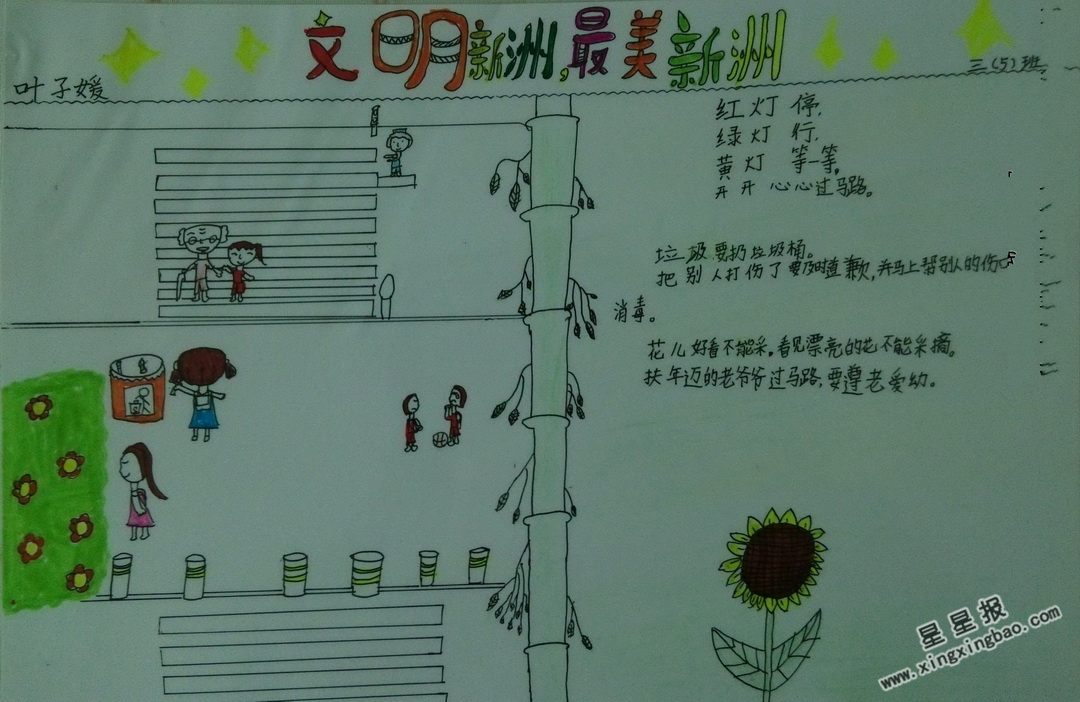 文明新洲,最美新洲
叶子媛
三(5)班
红灯停,
绿灯行,
黄灯等一等,
开开心心过马路。
垃圾要扔垃圾桶。
把别人打伤了要及时道歉,并马上帮别人的伤口
消毒。
花儿好看不能采,看见漂亮的花不能采摘。
扶年迈的老爷爷过马路,要遵老爱幼。
星星报
www.xingxingbao.com